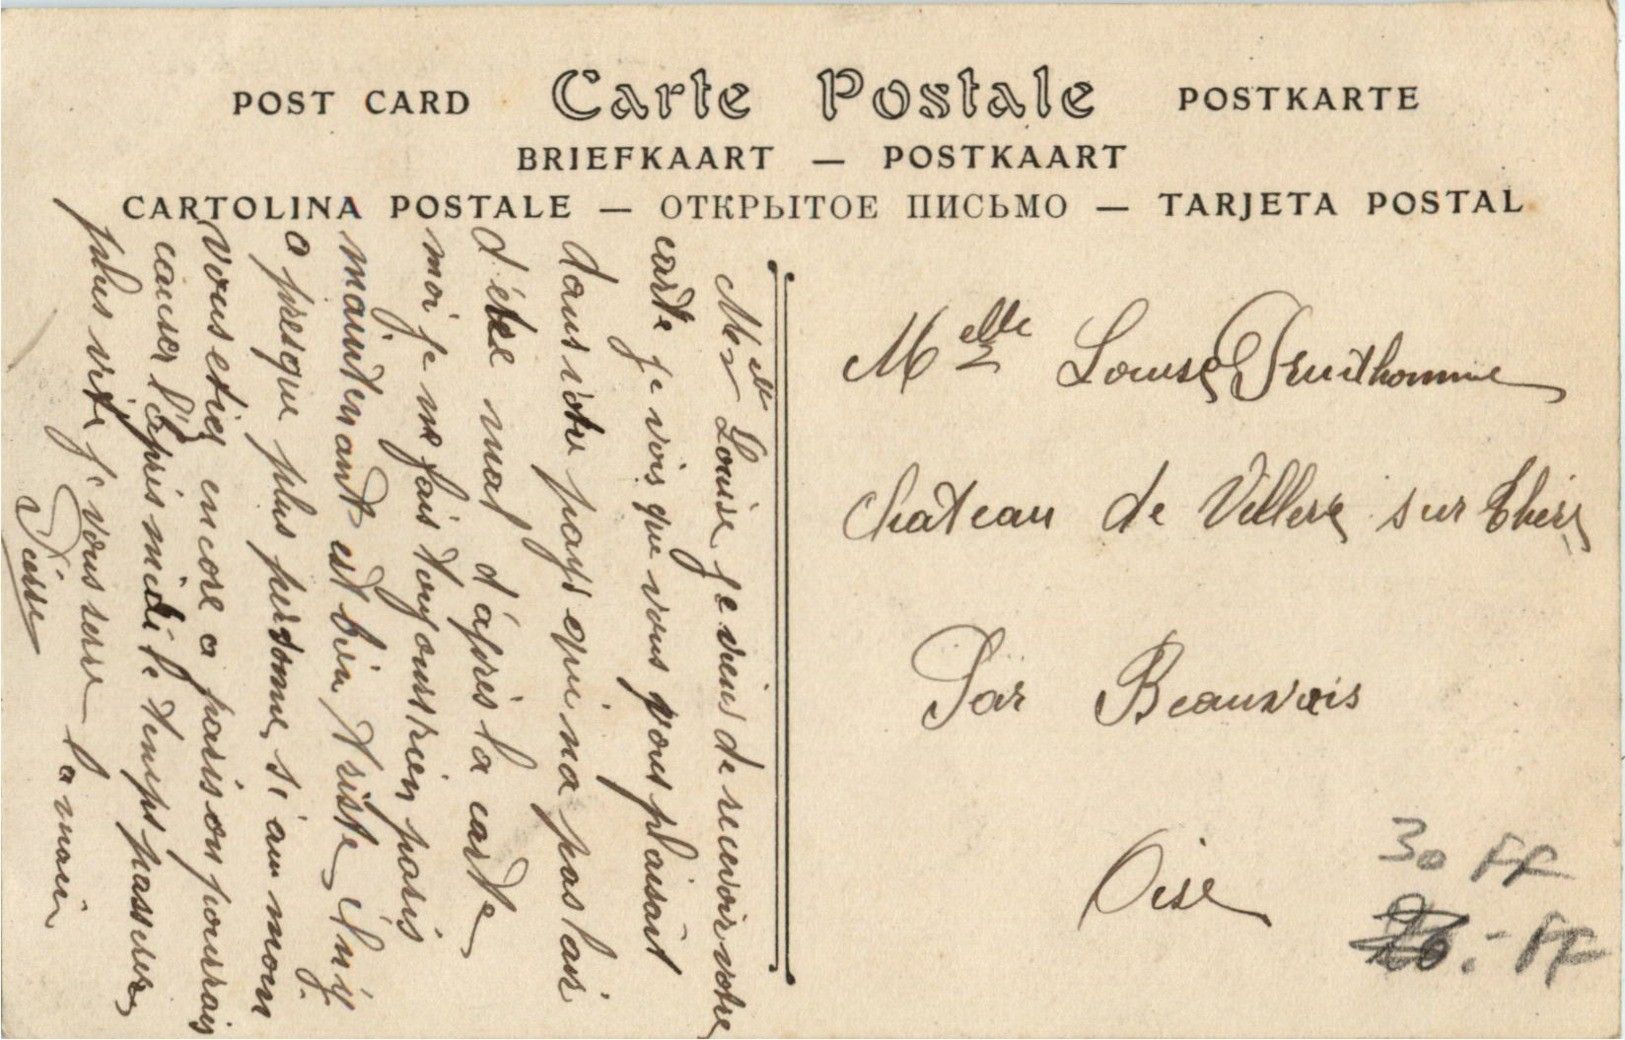 POST CARD Carte Postale POSTKARTE
BRIEFKAART — POSTKAART
CARTOLINA POSTALE — ОТКРЫТОЕ ПИСЬМО — TARJETA POSTAL
Melle Louise je viens de recevoir votre
carte je vois que vous vous plaisait
dans votre pays qui na pas lair
d'être mal d'après la carte
moi je me fais toujours rien paris
maintenant est bien triste, il ny
a presque plus personne, si au moin
vous etiez encore a paris on pourrais
causer l'après midi le temps passerez
plus vite je vous serre la main
Melle Louise Prudhomme
chateau de Villers sur Thère
Par Beauvais
Oise
30 FF
20.- FF